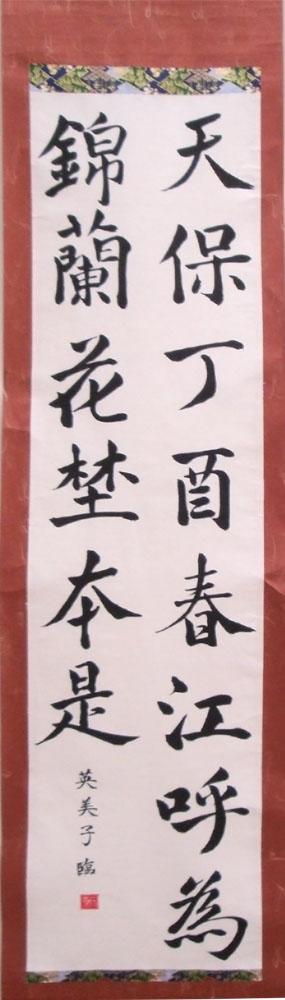 天保丁酉春江呼為
錦蘭花埜本是
英美子臨